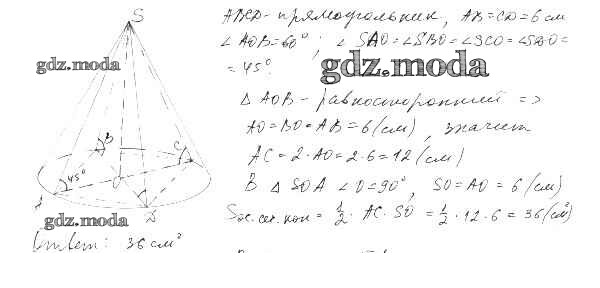 S
ABCD - прямоугольник, AB = CD = 6 см
∠AOB = 60°; ∠SAO = ∠SBO = ∠SCO = ∠SDO =
= 45°.
gdz.moda
gdz.moda
△ AOB - равносторонний =>
AO = BO = AB = 6 (см), значит
B
C
AC = 2 · AO = 2 · 6 = 12 (см)
45°
O
В △ SOA ∠O = 90°, SO = AO = 6 (см)
A
D
gdz.moda
Sос. сеч. кон = 1/2 · AC · SO = 1/2 · 12 · 6 = 36 (см²)
Ответ: 36 см²